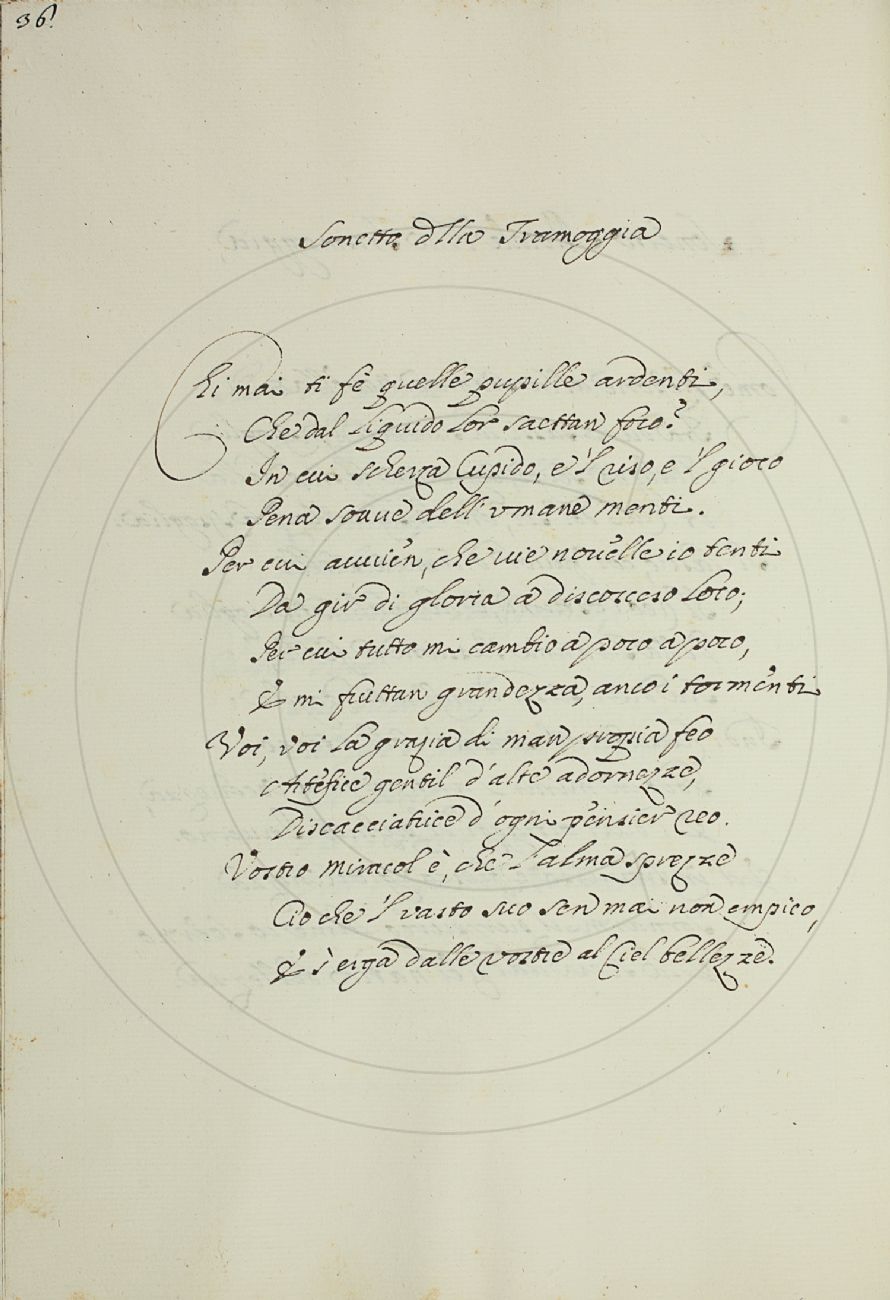 36.
Sonetto dlla Tramoggia
Chi mai ti fè quelle pupille ardenti,
Che dal liquido lor saettan foco?
In cui scherza Cupido, e 'l riso, e 'l gioco
Pena soave dell' umane menti.
Per cui avvien, che vie novelle io tenti
Da gir di gloria a discosceso loco;
Per cui tutto mi cambio a poco a poco,
E mi fruttan grandezza, anco i tormenti
Voi, voi la grazia di man propria feo
Artefice gentil d'alte adornezze,
Discacciatrice d'ogni pensier reo.
Vostro miracol è, che l'alma sprezze
Cio che 'l vasto suo sen mai non empieo,
E s'erga dalle vostre al Ciel bellezze.